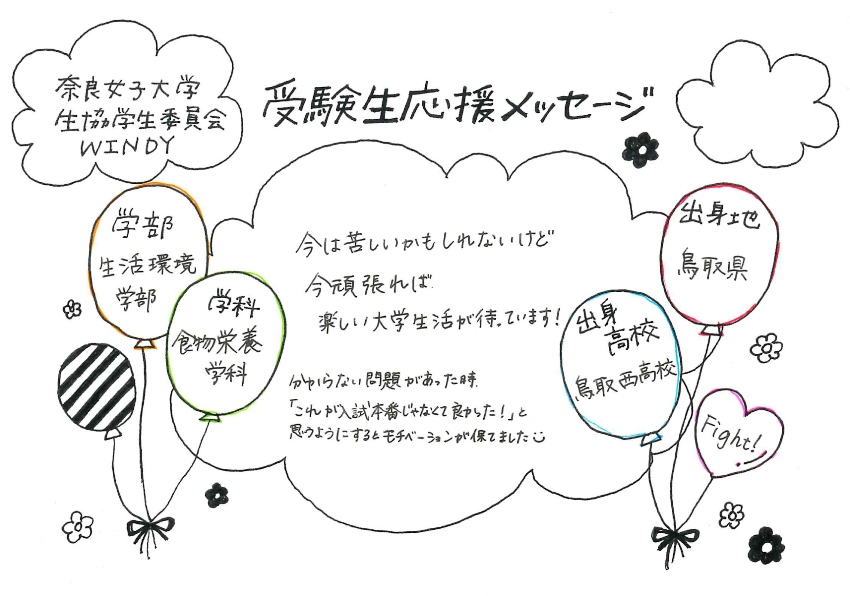 奈良女子大学
生協学生委員会
WINDY
受験生応援メッセージ
学部
生活環境
学部
学科
食物栄養
学科
今は苦しいかもしれないけど
今頑張れば
楽しい大学生活が待っています!
分からない問題があった時、
「これが入試本番じゃなくて良かった!」と
思うようにするとモチベーションが保てました
出身地
鳥取県
出身
高校
鳥取西高校
Fight!